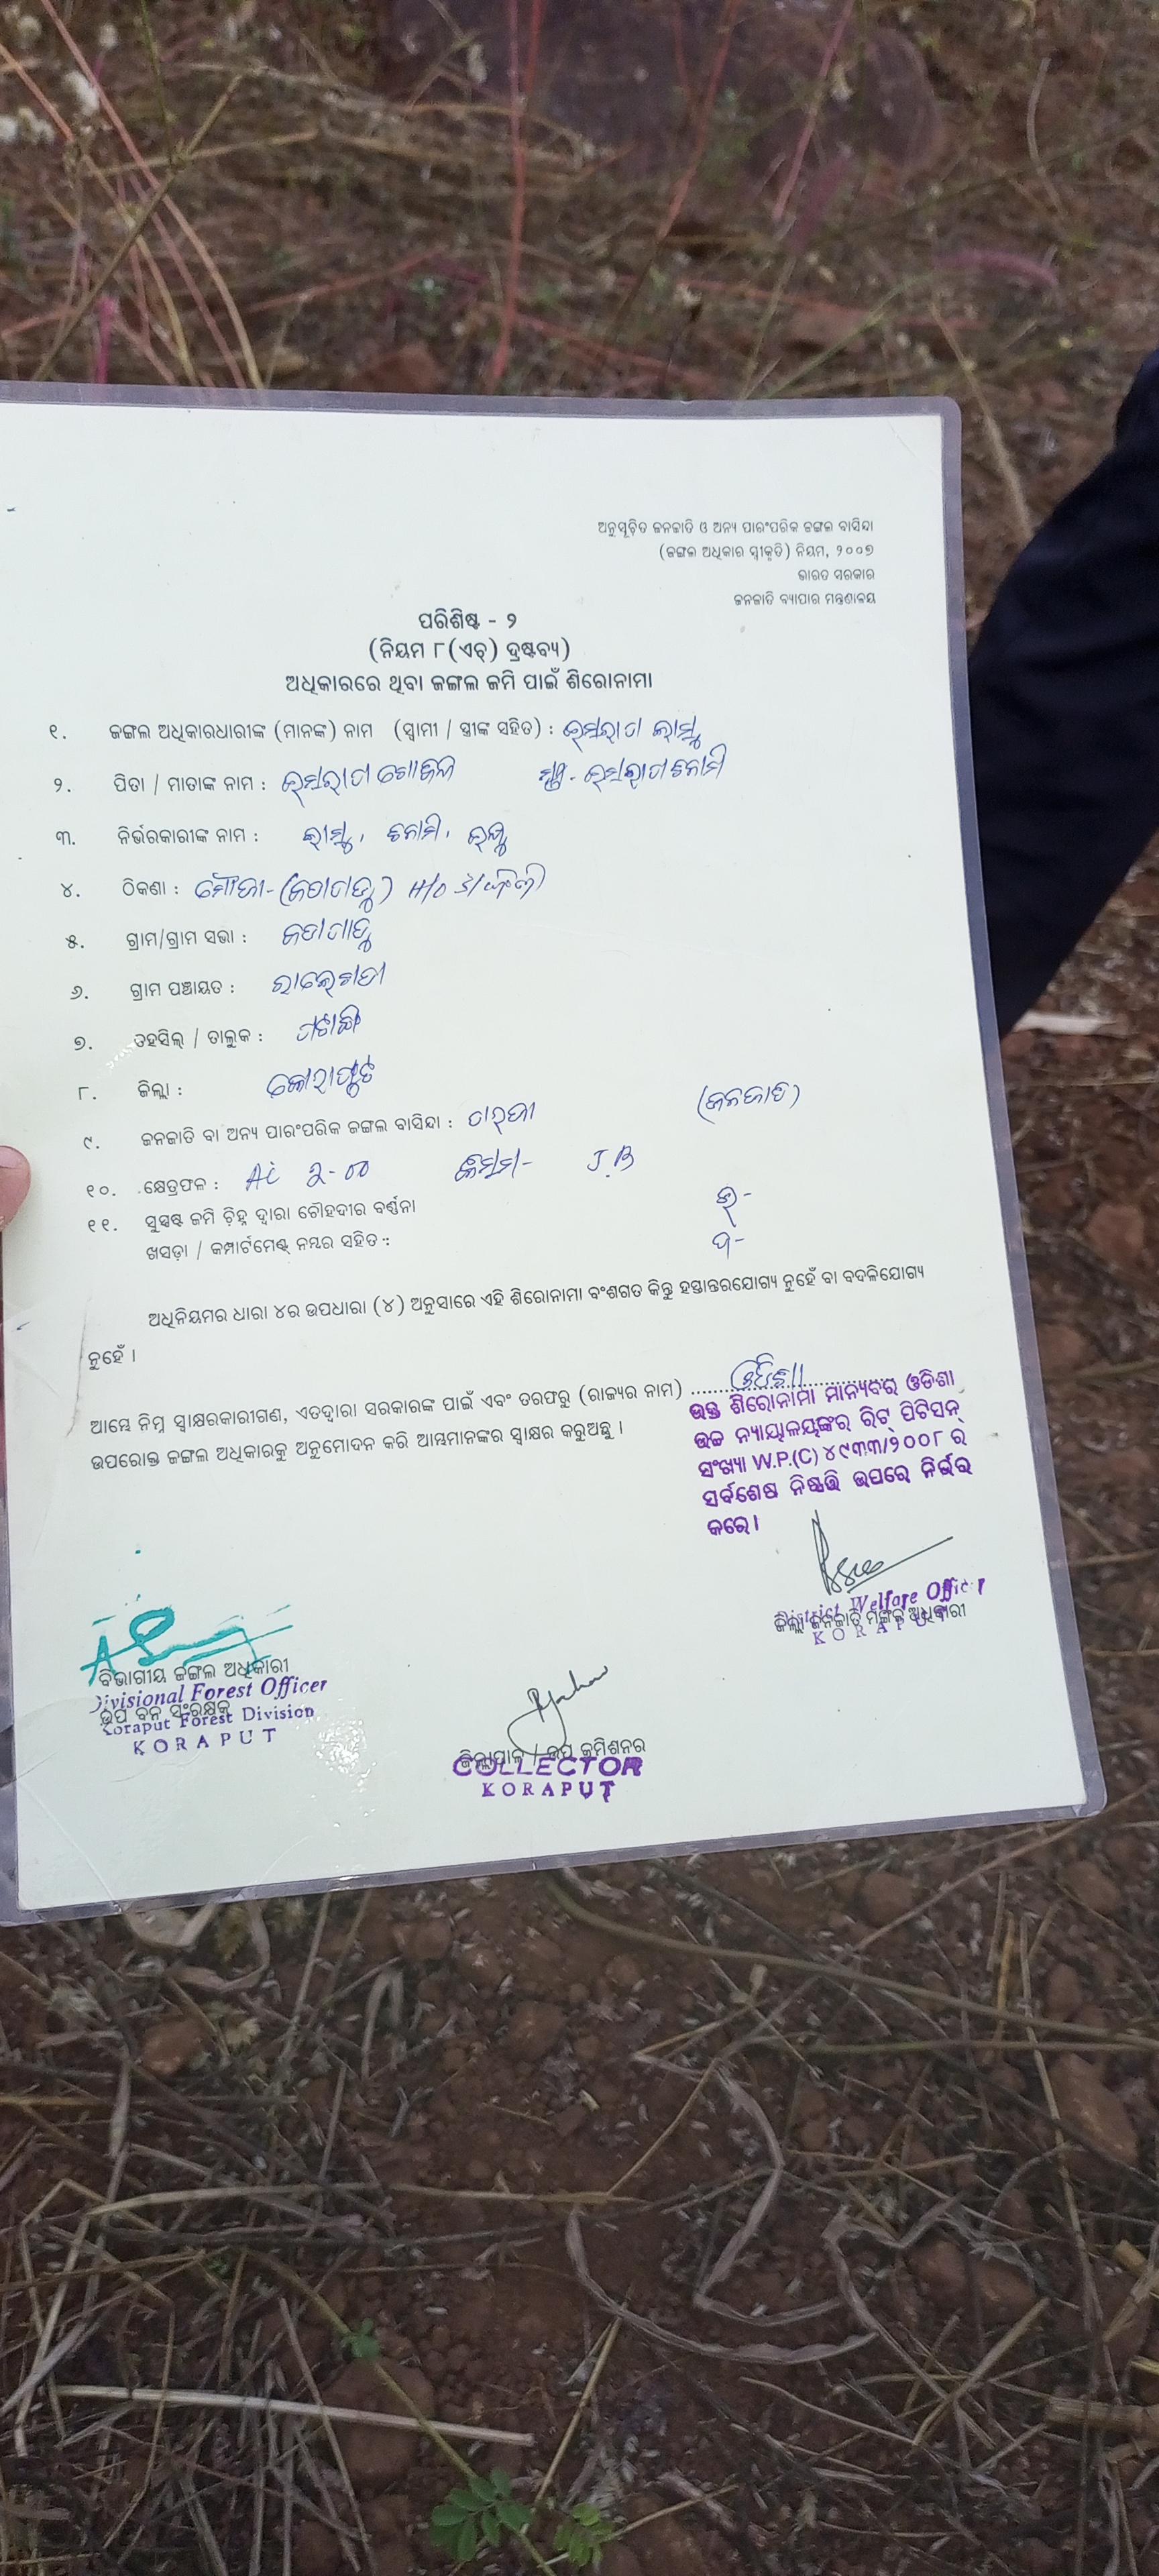 ଅନୁସୂଚିତ ଜନଜାତି ଓ ଅନ୍ୟ ପାରଂପରିକ ଜଙ୍ଗଲ ବାସିନ୍ଦା
(ଜଙ୍ଗଲ ଅଧିକାର ସ୍ୱୀକୃତି) ନିୟମ, ୨୦୦୭
ଭାରତ ସରକାର
ଜନଜାତି ବ୍ୟାପାର ମନ୍ତ୍ରଣାଳୟ
ପରିଶିଷ୍ଟ - ୨
(ନିୟମ ୮(ଏଚ୍) ଦ୍ରଷ୍ଟବ୍ୟ)
ଅଧିକାରରେ ଥିବା ଜଙ୍ଗଲ ଜମି ପାଇଁ ଶିରୋନାମା
୧. ଜଙ୍ଗଲ ଅଧିକାରଧାରୀଙ୍କ (ମାନଙ୍କ) ନାମ (ସ୍ୱାମୀ / ସ୍ତ୍ରୀଙ୍କ ସହିତ) :
୨. ପିତା / ମାତାଙ୍କ ନାମ :
୩. ନିର୍ଭରକାରୀଙ୍କ ନାମ :
୪. ଠିକଣା : ମୌଜା- H/o
୫. ଗ୍ରାମ/ଗ୍ରାମ ସଭା :
୬. ଗ୍ରାମ ପଞ୍ଚାୟତ :
୭. ତହସିଲ୍ / ତାଲୁକ :
୮. ଜିଲ୍ଲା : କୋରାପୁଟ
୯. ଜନଜାତି ବା ଅନ୍ୟ ପାରଂପରିକ ଜଙ୍ଗଲ ବାସିନ୍ଦା : (ଜନଜାତି)
୧୦. କ୍ଷେତ୍ରଫଳ : Ac 2-00 କିସମ- J.B
୧୧. ସୁସ୍ପଷ୍ଟ ଜମି ଚିହ୍ନ ଦ୍ୱାରା ଚୌହଦୀର ବର୍ଣ୍ଣନା
ଖସଡ଼ା / କମ୍ପାର୍ଟମେଣ୍ଟ୍ ନମ୍ବର ସହିତ :
ଅଧିନିୟମର ଧାରା ୪ର ଉପଧାରା (୪) ଅନୁସାରେ ଏହି ଶିରୋନାମା ବଂଶଗତ କିନ୍ତୁ ହସ୍ତାନ୍ତରଯୋଗ୍ୟ ନୁହେଁ ବା ବଦଳିଯୋଗ୍ୟ
ନୁହେଁ ।
ଆମ୍ଭେ ନିମ୍ନ ସ୍ୱାକ୍ଷରକାରୀଗଣ, ଏତଦ୍ୱାରା ସରକାରଙ୍କ ପାଇଁ ଏବଂ ତରଫରୁ (ରାଜ୍ୟର ନାମ) ଓଡିଶା
ଉପରୋକ୍ତ ଜଙ୍ଗଲ ଅଧିକାରକୁ ଅନୁମୋଦନ କରି ଆମ୍ଭମାନଙ୍କର ସ୍ୱାକ୍ଷର କରୁଅଛୁ ।
ଉକ୍ତ ଶିରୋନାମା ମାନ୍ୟବର ଓଡିଶା
ଉଚ୍ଚ ନ୍ୟାୟାଳୟଙ୍କର ରିଟ୍ ପିଟିସନ୍
ସଂଖ୍ୟା W.P.(C) ୪୯୩୩/୨୦୦୮ ର
ସର୍ବଶେଷ ନିଷ୍ପତ୍ତି ଉପରେ ନିର୍ଭର
କରେ।
District Welfare Officer
ଜିଲ୍ଲା ଜନଜାତି ମଙ୍ଗଳ ଅଧିକାରୀ
KORAPUT
ବିଭାଗୀୟ ଜଙ୍ଗଲ ଅଧିକାରୀ
Divisional Forest Officer
ଉପ ବନ ସଂରକ୍ଷକ
Koraput Forest Division
KORAPUT
ଜିଲ୍ଲାପାଳ / ଉପ କମିଶନର
COLLECTOR
KORAPUT